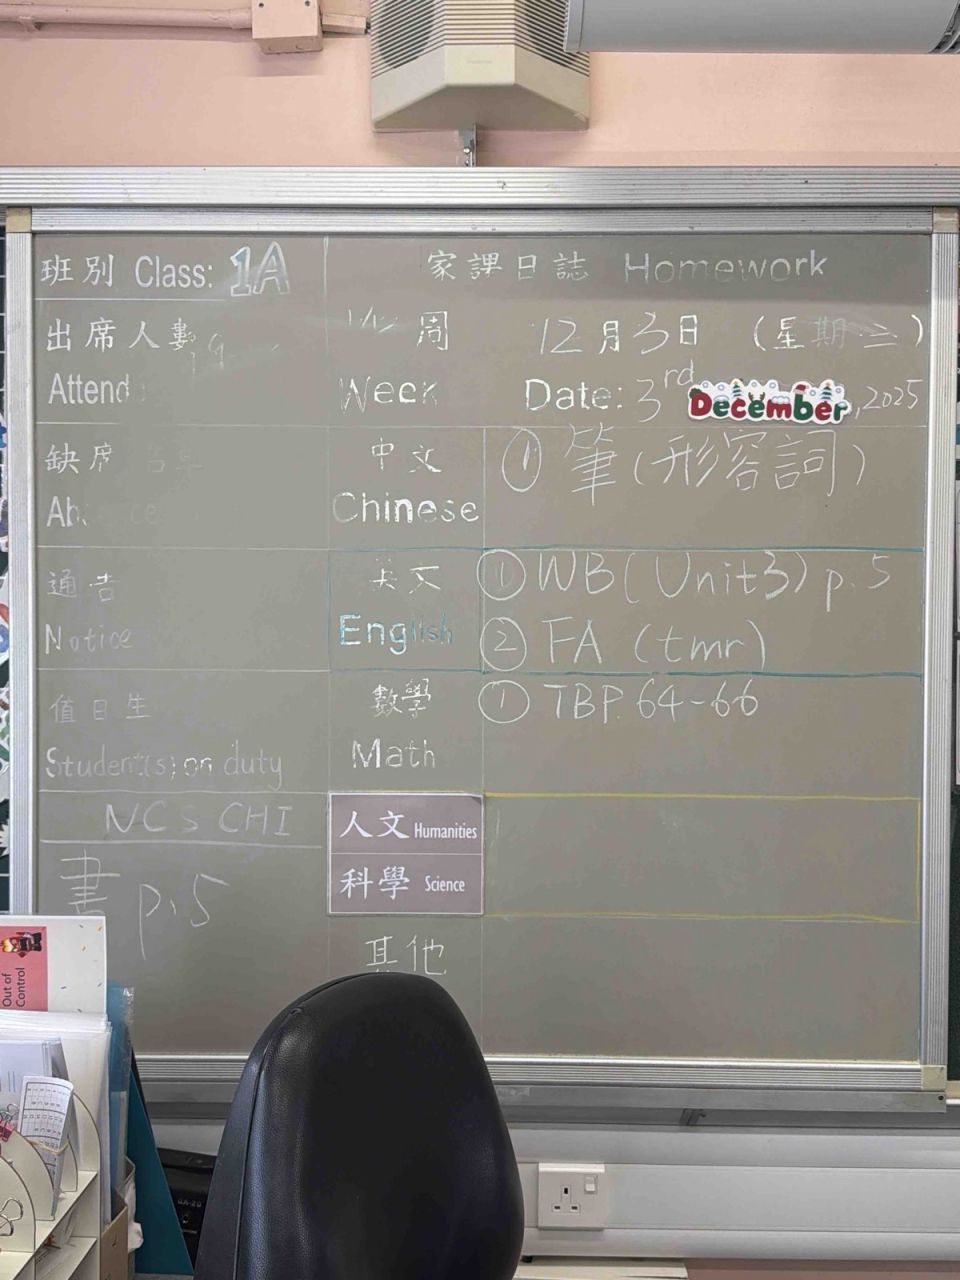 班別 Class: 1A
家課日誌 Homework
出席人數 19
Attend
周
12月3日 (星期三)
Week
Date: 3rd December, 2025
缺席
中文
Chinese
① 筆(形容詞)
通告
Notice
英文
English
① WB(Unit3) p.5
② FA (tmr)
值日生
Student(s) on duty
數學
Math
① TBP. 64-66
NCS CHI
書 p.5
人文 Humanities
科學 Science
其他
Out of
Control